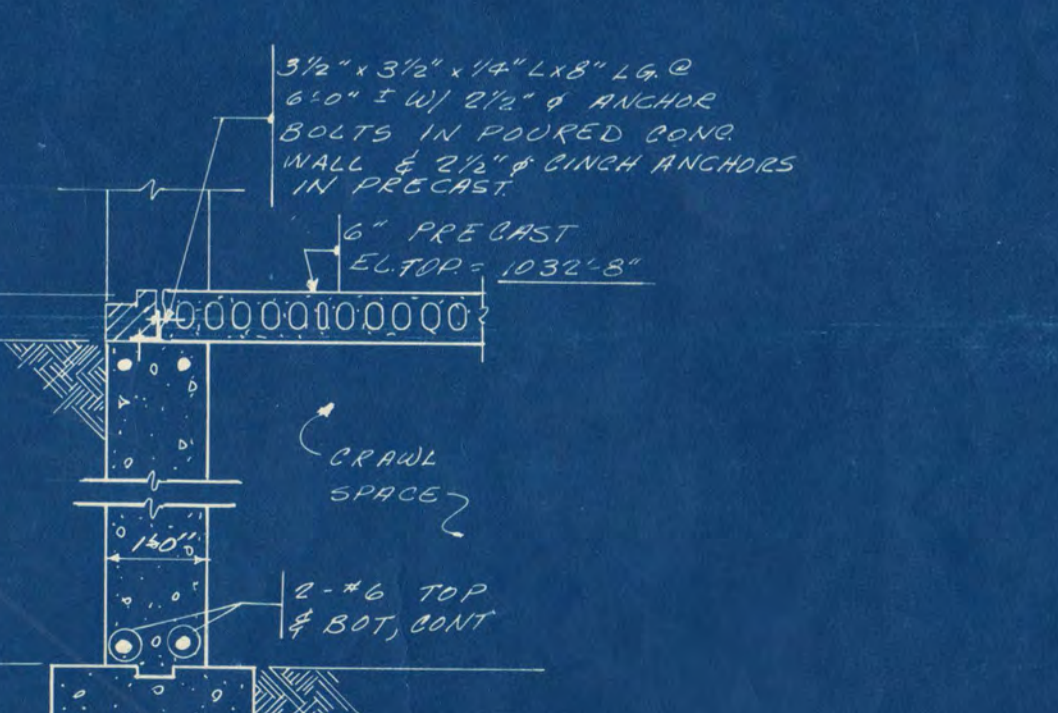 3½" x 3½" x ¼" L x 8" LG. @
6'-0" ± W/ 2½" ϕ ANCHOR
BOLTS IN POURED CONC.
WALL & 2½" ϕ CINCH ANCHORS
IN PRECAST.
6" PRECAST
EL. TOP = 1032'-8"
CRAWL
SPACE
1'-0"
2 - #6 TOP
& BOT, CONT